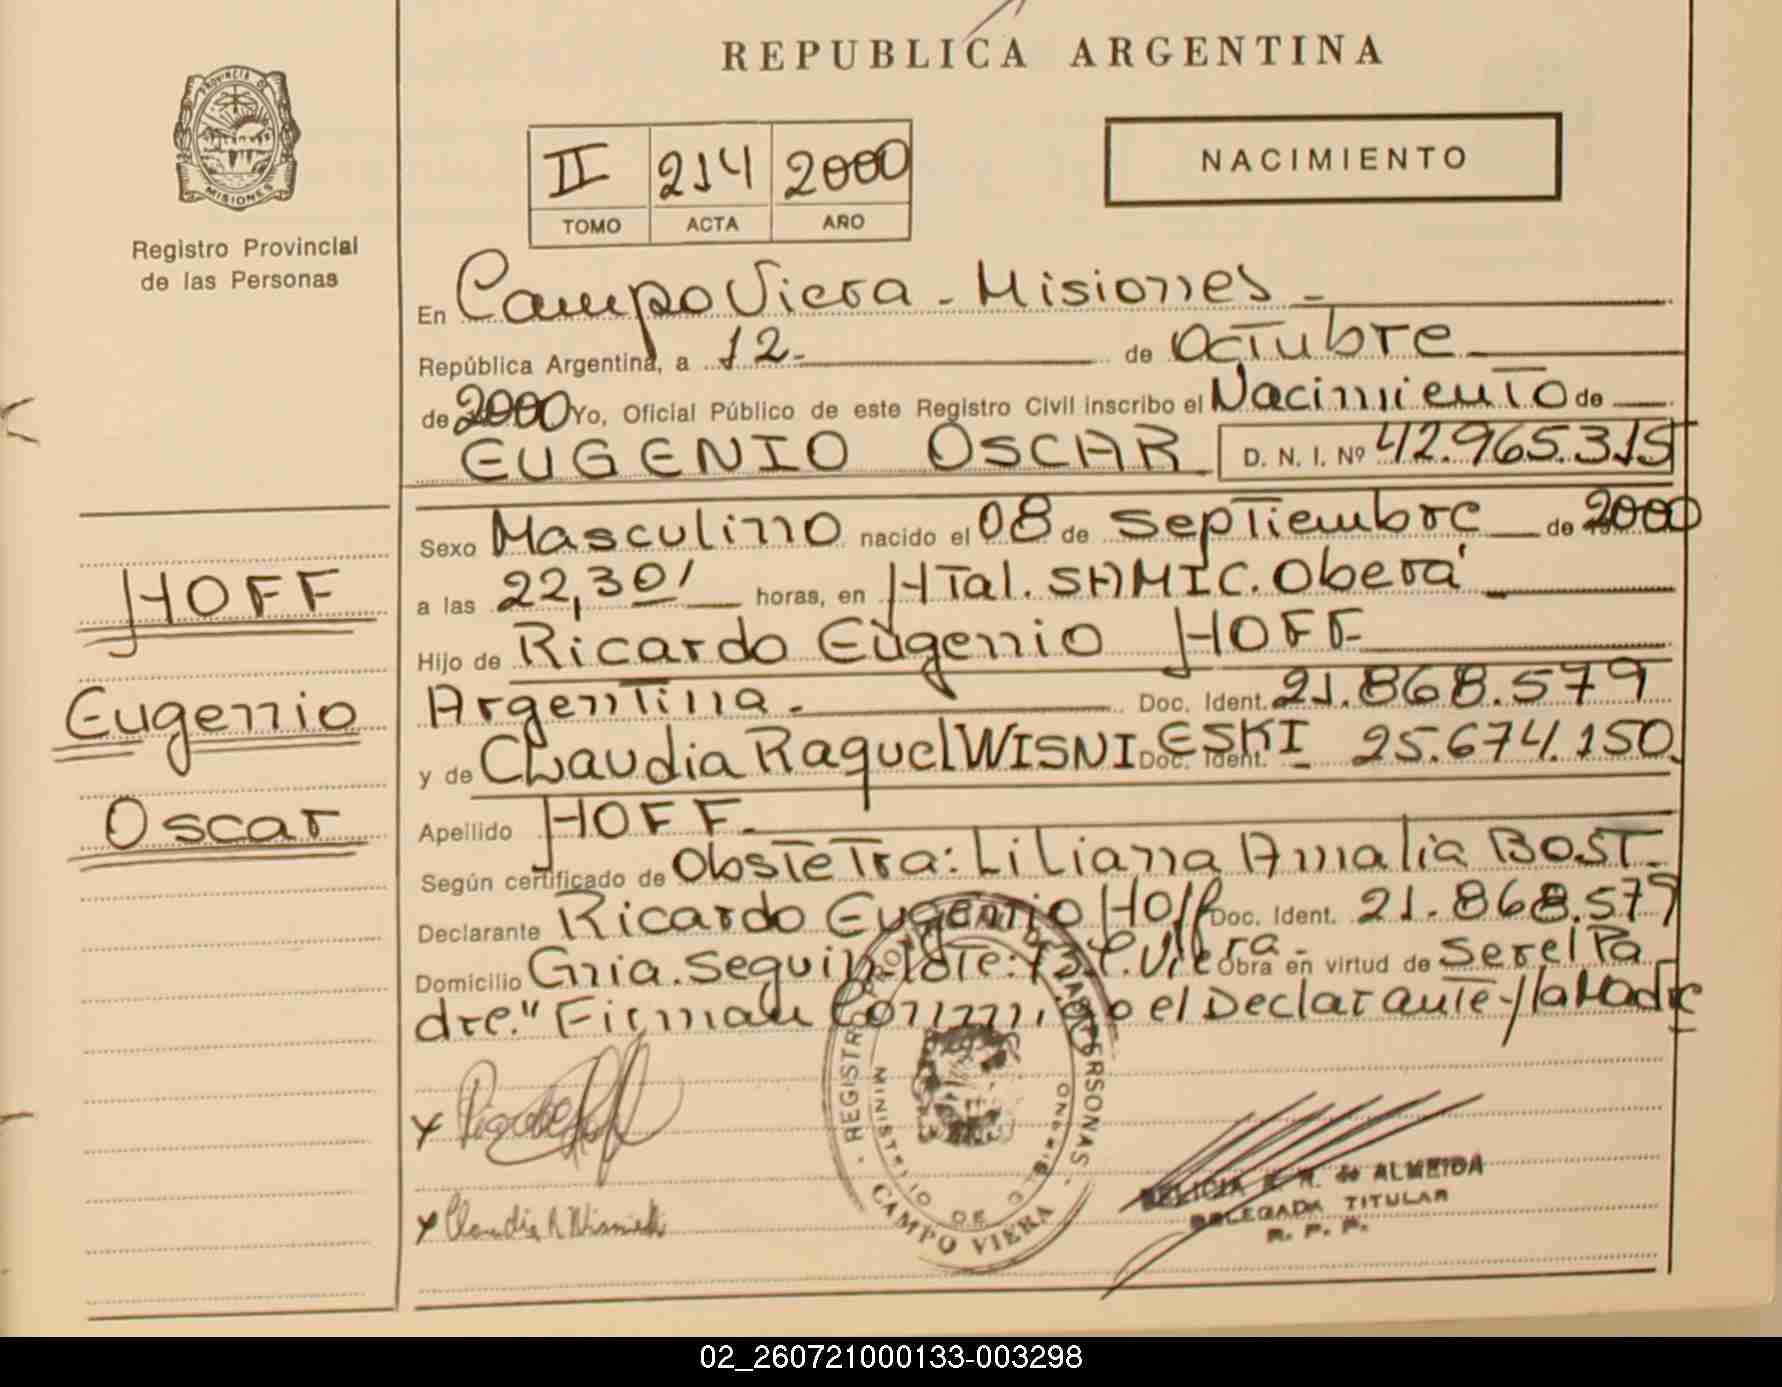 REPUBLICA ARGENTINA
PROVINCIA DE
MISIONES
Registro Provincial
de las Personas
NACIMIENTO
II 214 2000
TOMO ACTA AÑO
En Campo Viera - Misiones -
República Argentina, a 12- de Octubre
de 2000 Yo, Oficial Público de este Registro Civil inscribo el Nacimiento de
EUGENIO OSCAR D. N. I. Nº 42.965.315
Sexo Masculino nacido el 08 de Septiembre de 2000
a las 22,30' horas, en HTal. SAMIC. Oberá
Hijo de Ricardo Eugenio HOFF
Argentina - Doc. Ident. 21.868.579
y de Claudia Raquel WISNIESKI Doc. Ident. 25.674.150.
Apellido HOFF.
Según certificado de Obstetra: Liliana Amalia BOST.
Declarante Ricardo Eugenio Hoff Doc. Ident. 21.868.579
Domicilio Gnia. Seguin C. Viera - Obra en virtud de ser el Pa
dre." Firman Conmigo el Declarante y la Madre
HOFF
Eugenio
Oscar
REGISTRO PROVINCIAL DE LAS PERSONAS
MINISTERIO DE GOBIERNO
CAMPO VIERA
x
x Claudia R Wisnieski
R. de ALMEIDA
DELEGADA TITULAR
R. P. P.
02_260721000133-003298